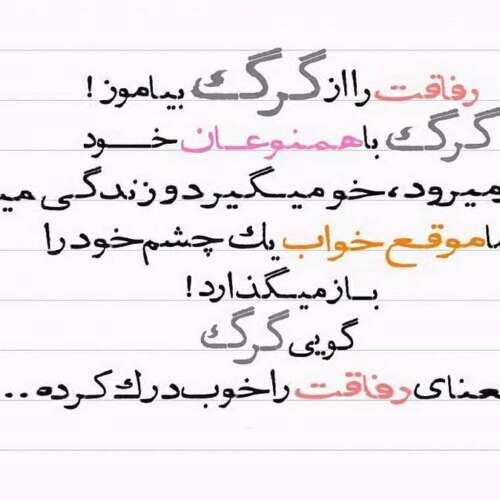 رفاقت را از گرگ بیاموز!
گرگ با همنوعان خود
میرود، خو میگیرد و زندگی می
موقع خواب یک چشم خود را
باز میگذارد!
گویی گرگ
معنای رفاقت را خوب درک کرده...